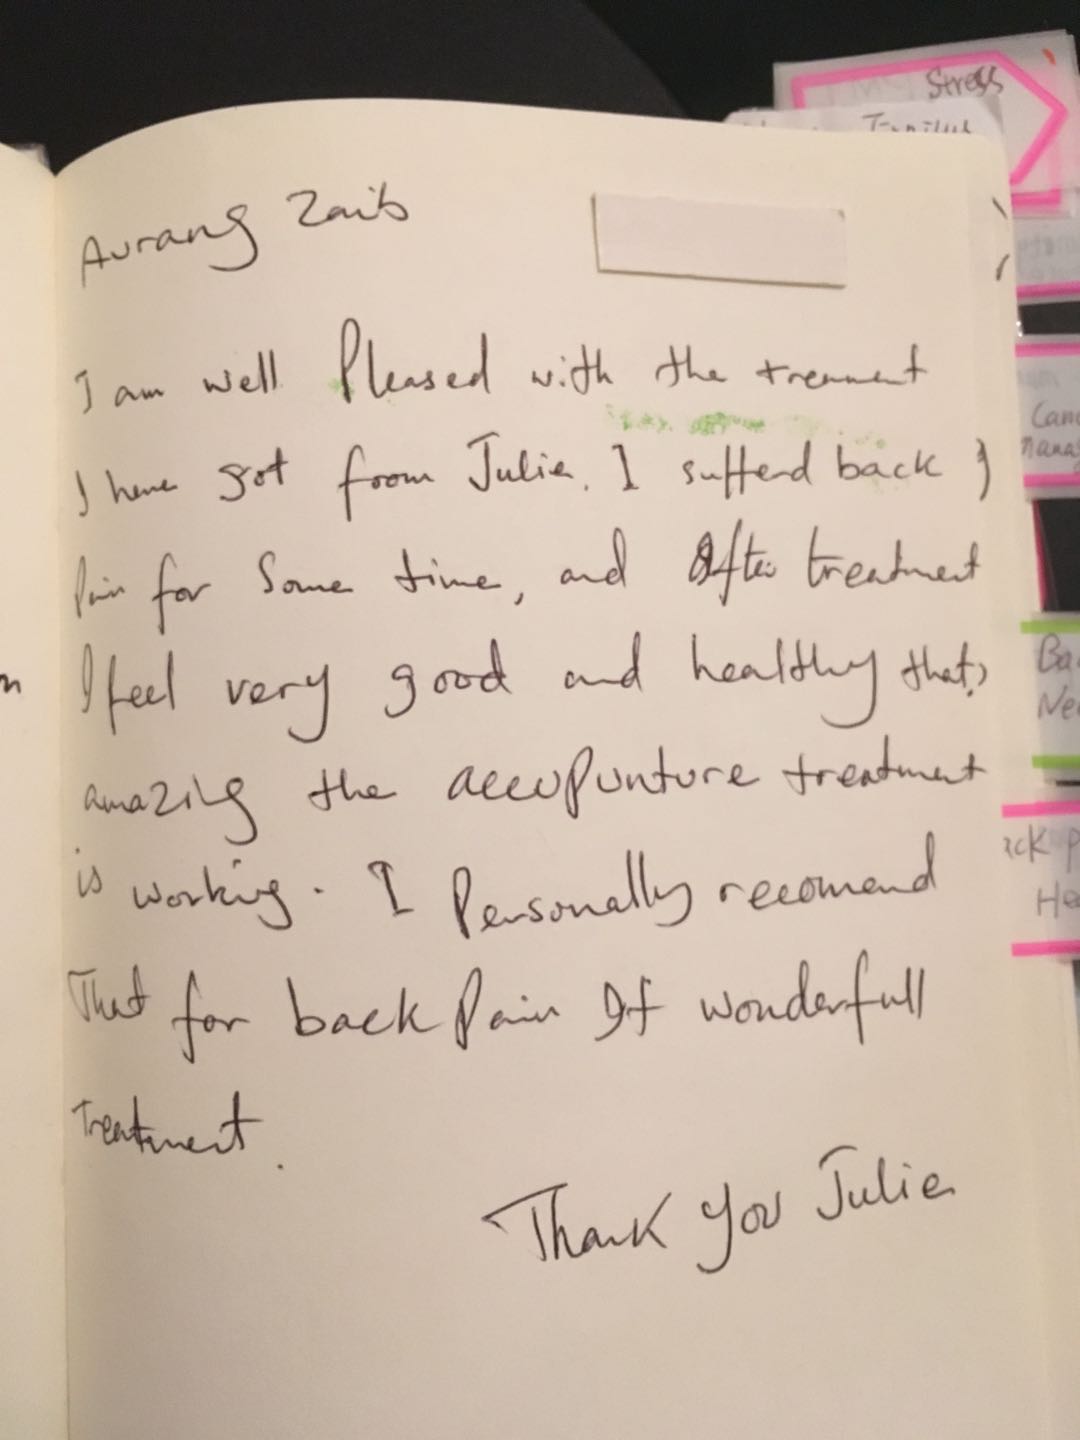 Stress
Aurang Zaib
I am well Pleased with the treament
I have got from Julie. I suffend back
Pain for Some time, and After treatment
I feel very good and healthy thats
amazing the accupunture treatment
is working. I Personally recomend
That for back Pain It wonderfull
Treatment.
Thank you Julie